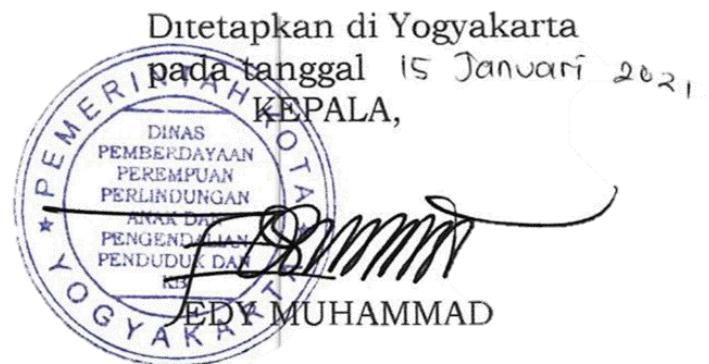 Ditetapkan di Yogyakarta
pada tanggal 15 Januari 2021
KEPALA,
PEMERINTAH KOTA
DINAS
PEMBERDAYAAN
PEREMPUAN
PERLINDUNGAN
ANAK DAN
PENGENDALIAN
PENDUDUK DAN
KB
YOGYAKARTA
EDY MUHAMMAD